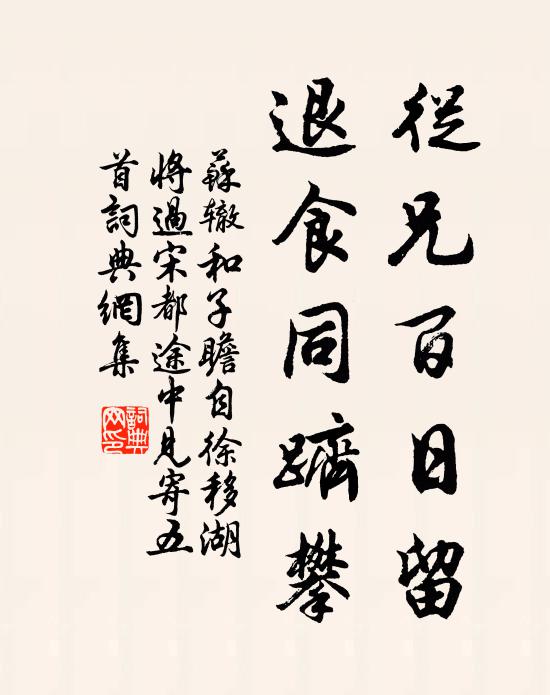 從兄百日留
退食同躋攀
蘇辙和子瞻自徐移湖
將過宋都途中見寄五
首詞典網集
詞典
网印